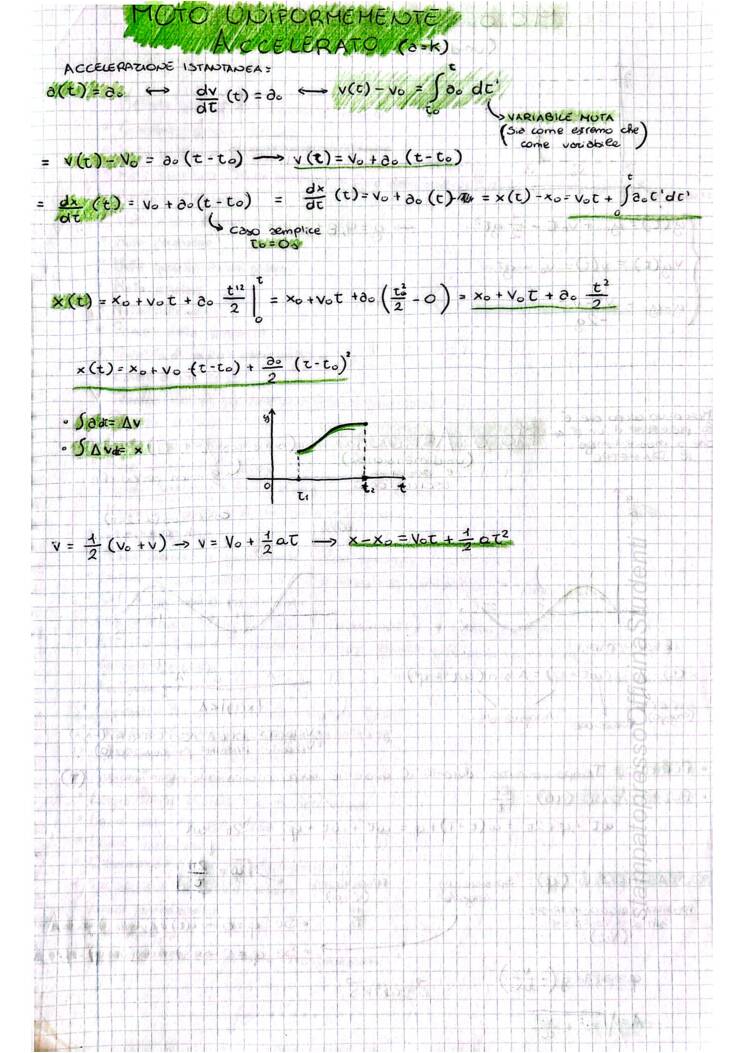 MOTO UNIFORMEMENTE
ACCELERATO (a=k)
ACCELERAZIONE ISTANTANEA:
a(t) = a₀ ⟷ dv/dt (t) = a₀ ⟷ v(t) - v₀ = ∫_{t₀}^{t} a₀ dt'
↳ VARIABILE MUTA
(sia come estremo che
come variabile)
= v(t) - v₀ = a₀ (t - t₀) ⟶ v(t) = v₀ + a₀ (t - t₀)
= dx/dt (t) = v₀ + a₀ (t - t₀) = dx/dt (t) = v₀ + a₀ (t) = x(t) - x₀ = v₀t + ∫_{0}^{t} a₀ t' dt'
↳ caso semplice
t₀ = 0s
x(t) = x₀ + v₀t + a₀ t'²/2 |_{0}^{t} = x₀ + v₀t + a₀ (t₀²/2 - 0) = x₀ + v₀t + a₀ t²/2
x(t) = x₀ + v₀ (t - t₀) + a₀/2 (t - t₀)²
• ∫a dt = Δv
• ∫Δv dt = x
0 t₁ t₂ t
v = 1/2 (v₀ + v) → v = v₀ + 1/2 at ⟶ x - x₀ = v₀t + 1/2 at²
stampatopressoOfficinaStudenti